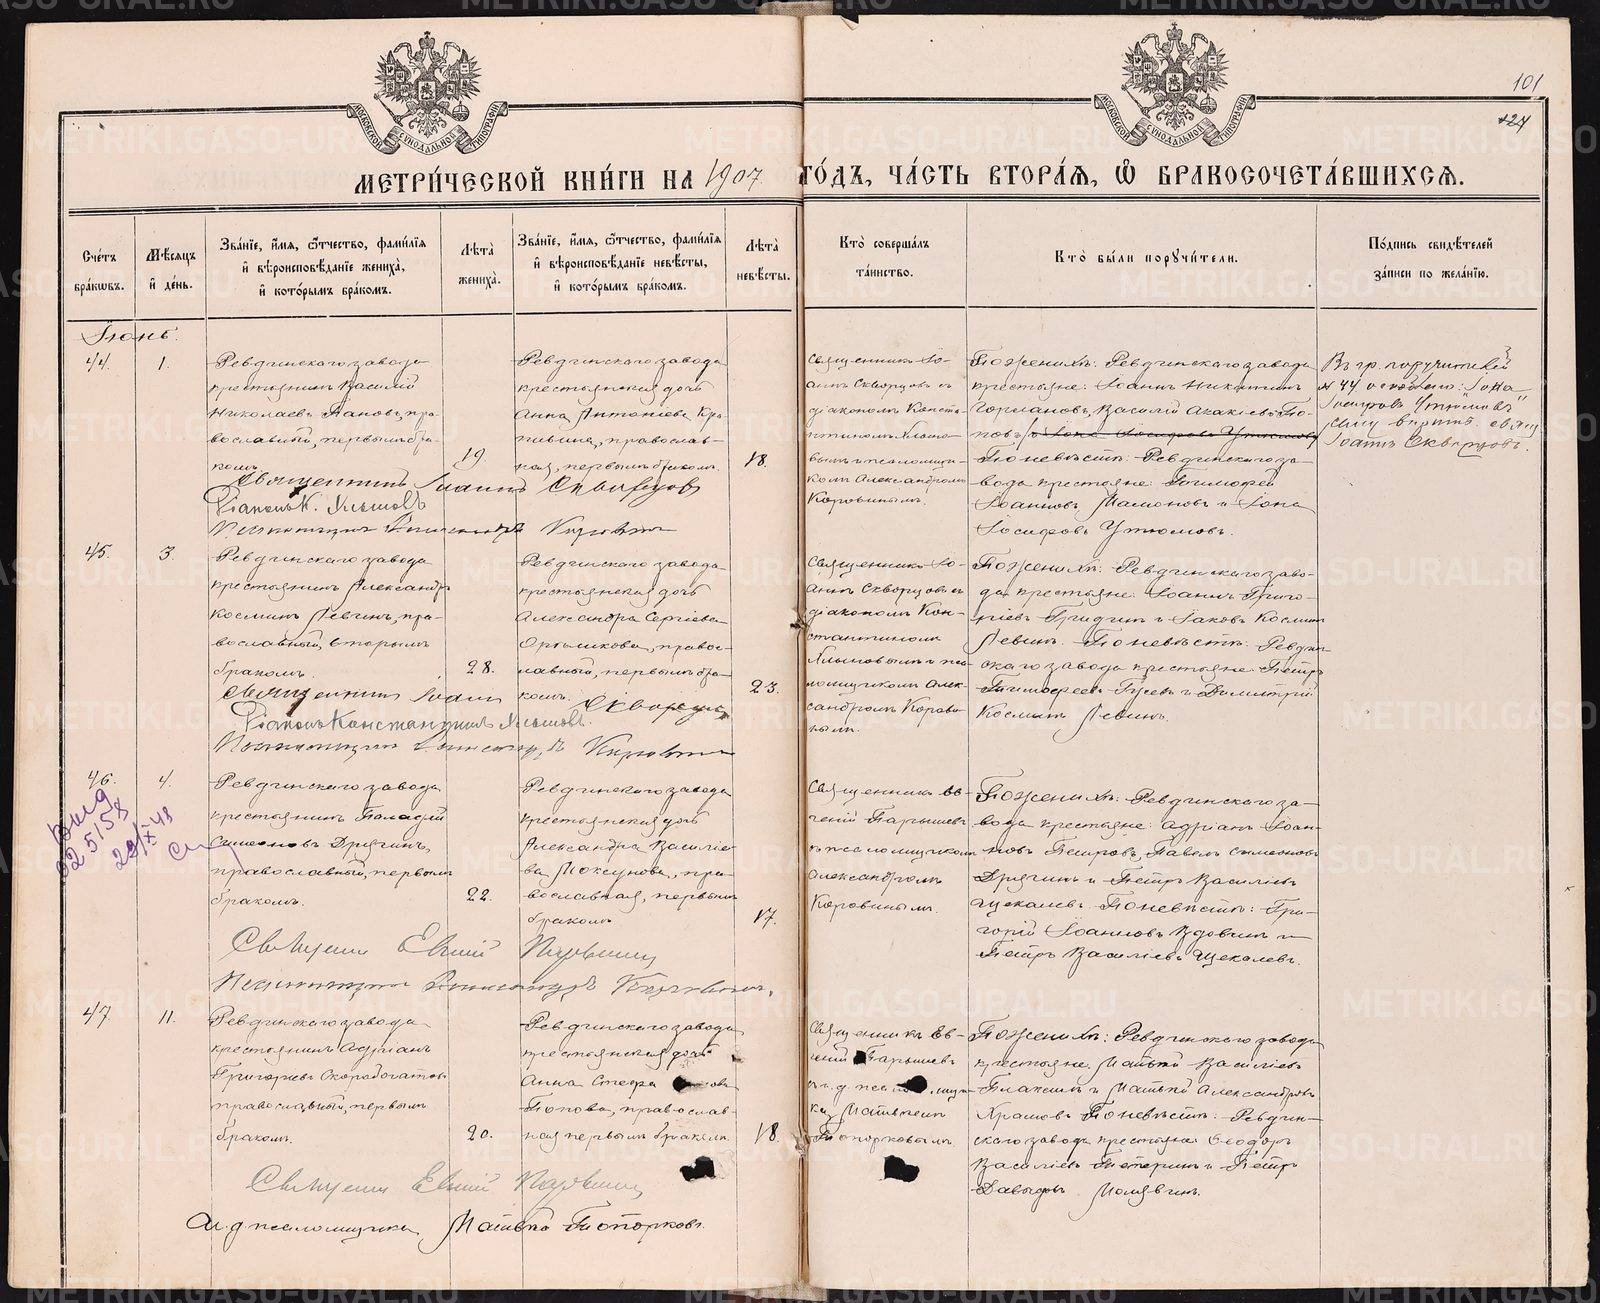 101
МЕТРИ́ЧЕСКОЙ КНИ́ГИ НА 1907 ГО́ДЪ, ЧА́СТЬ ВТОРА́Я, Ѡ҆ БРАКОСОЧЕТА́ВШИХСЯ.
Сче́тъ бра́кѡвъ.
Мѣ́сяцъ и҆ де́нь.
Зва́нїе, и҆́мя, ѻ҆́тчество, фами́лїя и҆ вѣроисповѣ́данїе жениха̀, и҆ кото́рымъ бра́комъ.
Лѣ́та жениха̀.
Зва́нїе, и҆́мя, ѻ҆́тчество, фами́лїя и҆ вѣроисповѣ́данїе невѣ́сты, и҆ кото́рымъ бра́комъ.
Лѣ́та невѣ́сты.
Кто̀ соверша́лъ та́инство.
Кто̀ бы́ли порꙋчи́тели.
По́дпись свидѣ́телей за́писи по жела́нїю.
Іюнь.
44.
1.
Ревдинскаго завода
крестьянинъ Василій
Николаевъ Пановъ, пра-
вославный, первымъ бра-
комъ.
19.
Ревдинскаго завода
крестьянская дочь
Анна Антоніева
православ-
ная, первымъ бракомъ.
18.
Священникъ Іо-
аннъ Скворцовъ съ
діакономъ Конста-
нтиномъ Хлыно-
вымъ и псаломщи-
комъ Александромъ
Коровинымъ.
По женихѣ: Ревдинскаго завода
крестьяне: Іоаннъ Никитинъ
Василій Акакіевъ По-
повъ и Іона Іосифовъ Утюмовъ
По невѣстѣ: Ревдинскаго за-
вода крестьяне: Тимофей
Іоанновъ Мамоновъ и Іона
Іосифовъ Утюмовъ.
Въ гр. поручителей
№ 44 Іона
Іосифовъ Утюмовъ"
Іоаннъ Скворцовъ.
Священникъ Іоаннъ Скворцовъ
Діаконъ К. Хлыновъ
Псаломщикъ Александръ Коровинъ
45.
3.
Ревдинскаго завода
крестьянинъ Александръ
Косминъ Левинъ, пра-
вославный, вторымъ
бракомъ.
28.
Ревдинскаго завода
крестьянская дочь
Александра Сергіева
правос-
лавный, первымъ бра-
комъ.
23.
Священникъ Іо-
аннъ Скворцовъ съ
діакономъ Кон-
стантиномъ
Хлыновымъ и пса-
ломщикомъ Алек-
сандромъ Корови-
нымъ.
По женихѣ: Ревдинскаго заво-
да крестьяне: Іоаннъ Григо-
ріевъ Гридинъ и Іаковъ Косминъ
Левинъ. По невѣстѣ: Ревдин-
скаго завода крестьяне: Петръ
Тимофеевъ Гусевъ и Димитрій
Косминъ Левинъ.
Священникъ Іоаннъ Скворцовъ
Діаконъ Константинъ Хлыновъ.
Псаломщикъ Александръ Коровинъ
46.
4.
Ревдинскаго завода
крестьянинъ Палладій
Симеоновъ Дрягинъ,
православный, первымъ
бракомъ.
22.
Ревдинскаго завода
крестьянская дочь
Александра Василіе-
ва Моксунова, пра-
вославная, первымъ
бракомъ.
17.
Священникъ Ев-
геній Парышевъ
и псаломщикомъ
Александромъ
Коровинымъ.
По женихѣ: Ревдинскаго за-
вода крестьяне: Адріанъ Іоан-
новъ Петровъ, Павелъ Симеоновъ
Дрягинъ и Петръ Василіевъ
Щекалевъ. По невѣстѣ: Гри-
горій Іоанновъ Вдовинъ и
Петръ Василіевъ Щекалевъ.
Священникъ Евгеній Парышевъ
Псаломщикъ Александръ Коровинъ.
47
11.
Ревдинскаго завода
крестьянинъ Адріанъ
Григорьевъ Скоробогатовъ
православный, первымъ
бракомъ.
20.
Ревдинскаго завода
крестьянская дочь
Анна
Попова, православ-
ная первымъ бракомъ.
18.
Священникъ Ев-
геній Парышевъ
и и. д. псаломщи-
ка Матвѣемъ
Топорковымъ.
По женихѣ: Ревдинскаго завода
крестьяне Матвѣй Василіевъ
Плаксинъ и Матвѣй Александровъ
Храмовъ. По невѣстѣ: Ревдин-
скаго завода крестьяне Ѳеодоръ
Василіевъ Тетеринъ и Петръ
Давыдовъ
Священникъ Евгеній Парышевъ
И. д. псаломщика, Матвѣй Топорковъ.
METRIKI.GASO-URAL.RU